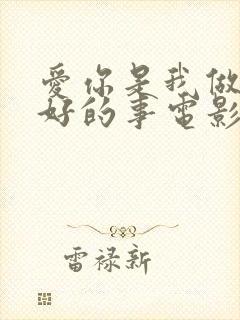 愛你是我做
好的事电影
雷禄新